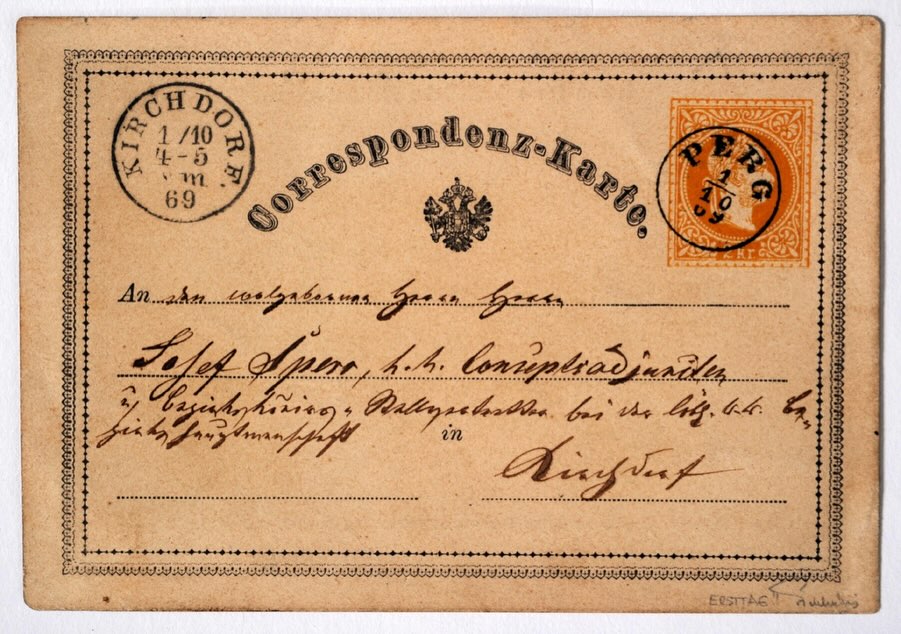 Correspondenz-Karte.
KIRCHDORF.
1/10
4-5
69
PERG
1
10
69
2 Kr.
An den wolgebornen Herrn Herrn
Josef Spero, k. k. Conceptsadjuncten
u. bei der löbl. k. k. Be-
zirkshauptmannschaft in
Kirchdorf
ERSTTAG